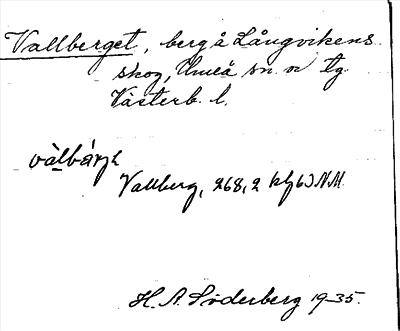 Vallberget, berg å Långvikens
skog, Umeå sn. o. tg.
Västerb. l.
Vallberg, 268,2
H. A. Söderberg 1935.